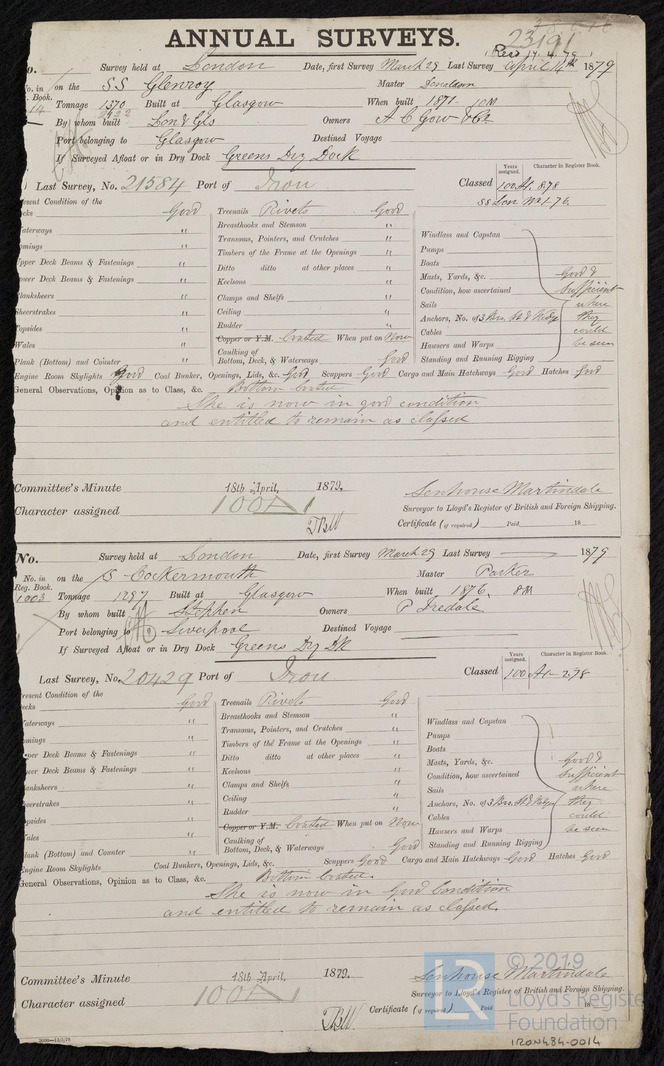 23191
ANNUAL SURVEYS.
Rec 17.4.79
No. Survey held at London Date, first Survey March 29 Last Survey April 14th 1879
No. in on the SS Glenroy Master Donaldson
Book. Tonnage 1370 Built at Glasgow When built 1871 - 10M
By whom built Lon & Gls Owners A C Gow & Co
Port belonging to Glasgow Destined Voyage
If Surveyed Afloat or in Dry Dock Greens Dry Dock
Last Survey, No. 21584 Port of Iron Classed
Years assigned. Character in Register Book.
100 A1 8.78
SS Lon No1-76
Present Condition of the
Decks Good Treenails Rivets Good
Waterways " Breasthooks and Stemson " Windlass and Capstan
Comings " Transoms, Pointers, and Crutches " Pumps
Upper Deck Beams & Fastenings " Timbers of the Frame at the Openings " Boats
Lower Deck Beams & Fastenings " Ditto ditto at other places " Masts, Yards, &c. Good &
Planksheers " Keelsons " Condition, how ascertained sufficient
Sheerstrakes " Clamps and Shelfs " Sails where
Topsides " Ceiling " Anchors, No. of 3 Brs, St & Kedge they
Wales " Rudder " Cables could
Copper or Y.M. Coated When put on Now Hawsers and Warps be seen
Plank (Bottom) and Counter " Caulking of Bottom, Deck, & Waterways Good Standing and Running Rigging
Engine Room Skylights Good Coal Bunker, Openings, Lids, &c. Good Scuppers Good Cargo and Main Hatchways Good Hatches Good
General Observations, Opinion as to Class, &c. Bottom Coated
She is now in good condition
and entitled to remain as classed
Committee's Minute 18th April, 1879.
Character assigned 100A1
Senhouse Martindale
Surveyor to Lloyd's Register of British and Foreign Shipping.
Certificate (if required) Paid 18
No. Survey held at London Date, first Survey March 29 Last Survey 1879
No. in on the S Cockermouth Master Parker
Reg. Book. 1003 Tonnage 1297 Built at Glasgow When built 1876. 8M
By whom built Stephen Owners P Iredale
Port belonging to Liverpool Destined Voyage
If Surveyed Afloat or in Dry Dock Greens Dry Dk
Last Survey, No. 20429 Port of Iron Classed
Years assigned. Character in Register Book.
100 A1 - 2.78
Present Condition of the
Decks Good Treenails Rivets Good
Waterways " Breasthooks and Stemson " Windlass and Capstan
Comings " Transoms, Pointers, and Crutches " Pumps
Upper Deck Beams & Fastenings " Timbers of the Frame at the Openings " Boats
Lower Deck Beams & Fastenings " Ditto ditto at other places " Masts, Yards, &c. Good &
Planksheers " Keelsons " Condition, how ascertained sufficient
Sheerstrakes " Clamps and Shelfs " Sails where
Topsides " Ceiling " Anchors, No. of 3 Brs, St & Kedge they
Wales " Rudder " Cables could
Copper or Y.M. Coated When put on Now Hawsers and Warps be seen
Plank (Bottom) and Counter " Caulking of Bottom, Deck, & Waterways Good Standing and Running Rigging
Engine Room Skylights Coal Bunkers, Openings, Lids, &c. Scuppers Good Cargo and Main Hatchways Good Hatches Good
General Observations, Opinion as to Class, &c. Bottom Coated.
She is now in Good Condition
and entitled to remain as classed.
Committee's Minute 18th April, 1879.
Character assigned 100A1
Senhouse Martindale
Surveyor to Lloyd's Register of British and Foreign Shipping.
Certificate (if required) Paid
© 2019
LR Lloyd's Register
Foundation
IRON484-0014